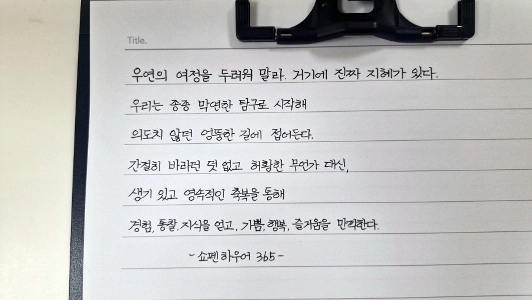 Title.
우연의 여정을 두려워 말라. 거기에 진짜 지혜가 있다.
우리는 종종 막연한 탐구로 시작해
의도치 않던 엉뚱한 길에 접어든다.
간절히 바라던 덧없고 허황한 무언가 대신,
생기 있고 영속적인 축복을 통해
경험, 통찰, 지식을 얻고, 기쁨, 행복, 즐거움을 만끽한다.
- 쇼펜하우어 365 -